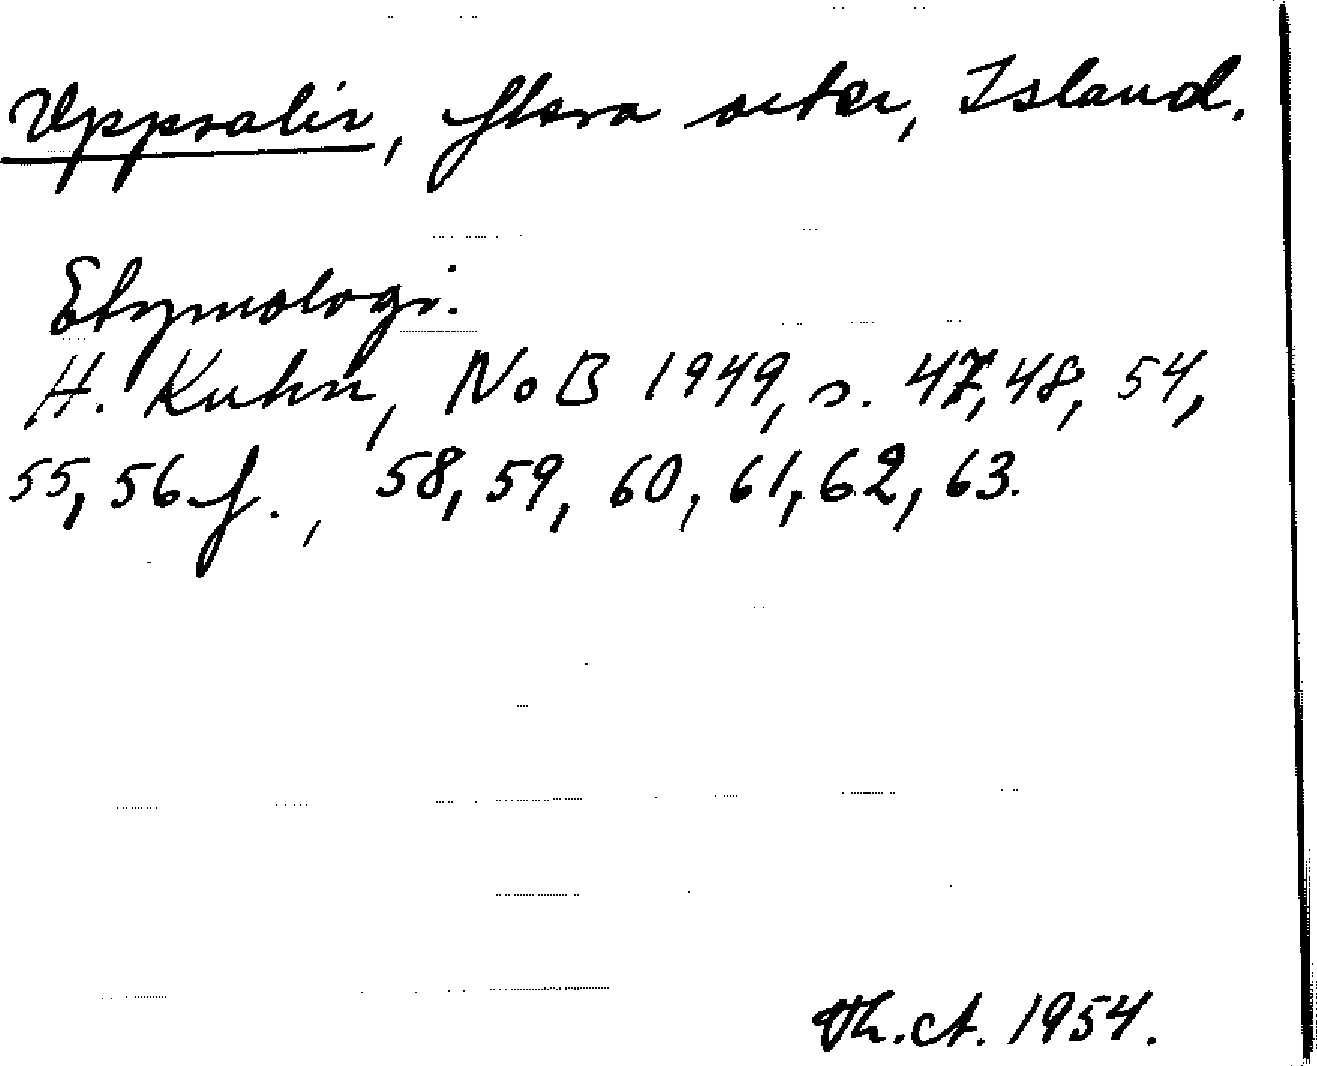 Uppsalir, flera orter, Island.
Etymologi.
H. Kuhn, NoB 1949, s. 47, 48, 54,
55, 56 f., 58, 59, 60, 61, 62, 63.
Th. A. 1954.